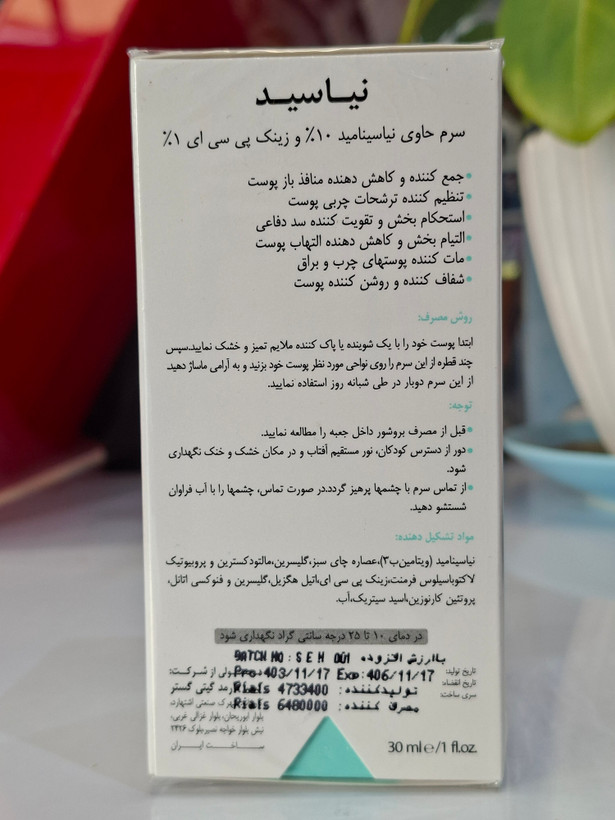 نیاسید
سرم حاوی نیاسینامید ۱۰٪ و زینک پی سی ای ۱٪
• جمع کننده و کاهش دهنده منافذ باز پوست
• تنظیم کننده ترشحات چربی پوست
• استحکام بخش و تقویت کننده سد دفاعی
• التیام بخش و کاهش دهنده التهاب پوست
• مات کننده پوستهای چرب و براق
• شفاف کننده و روشن کننده پوست
روش مصرف:
ابتدا پوست خود را با یک شوینده یا پاک کننده ملایم تمیز و خشک نمایید.سپس
چند قطره از این سرم را روی نواحی مورد نظر پوست خود بزنید و به آرامی ماساژ دهید.
از این سرم دوبار در طی شبانه روز استفاده نمایید.
توجه:
• قبل از مصرف بروشور داخل جعبه را مطالعه نمایید.
• دور از دسترس کودکان، نور مستقیم آفتاب و در مکان خشک و خنک نگهداری
شود.
• از تماس سرم با چشمها پرهیز گردد.در صورت تماس، چشمها را با آب فراوان
شستشو دهید.
مواد تشکیل دهنده:
نیاسینامید (ویتامین‌ب۳)،عصاره چای سبز،گلیسرین،مالتودکسترین و پروبیوتیک
لاکتوباسیلوس فرمنت،زینک پی سی ای،اتیل هگزیل،گلیسرین و فنوکسی اتانل،
پروتئین کارنوزین،اسید سیتریک،آب.
در دمای ۱۰ تا ۲۵ درجه سانتی گراد نگهداری شود
باارزش افزوده BATCH NO : S E H 001
تاریخ تولید: Pro:403/11/17 Exp:406/11/17 ولی از شرکت:
تاریخ انقضاء:
تولیدکننده: Rials 4733400 رمد گیتی گستر
سری ساخت:
مصرف کننده: Rials 6480000 رک صنعتی اشتهارد،
بلوار ابوریحان، بلوار غزالی غربی،
نبش بلوار خواجه نصیر،بلوک ۲۳۲۶
ساخت ایران
30 ml e/1 fl.oz.